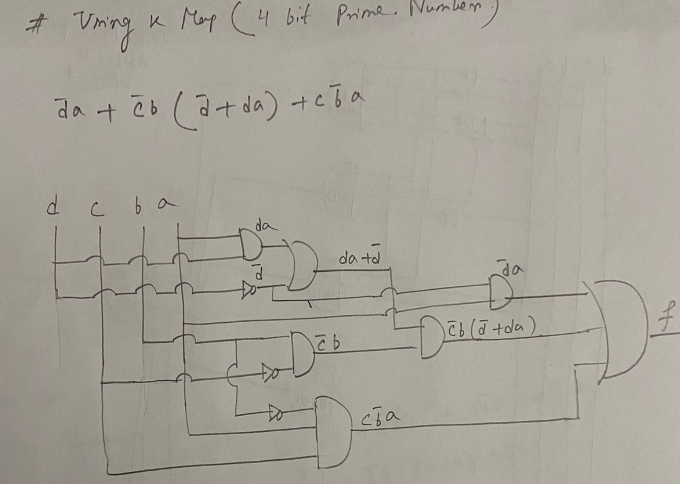 # Using K Map ( 4 bit Prime Number )
d̄a + c̄b ( d̄ + da ) + cb̄a
d c b a
da
d̄ da+d̄ d̄a
c̄b c̄b(d̄+da) f
cb̄a